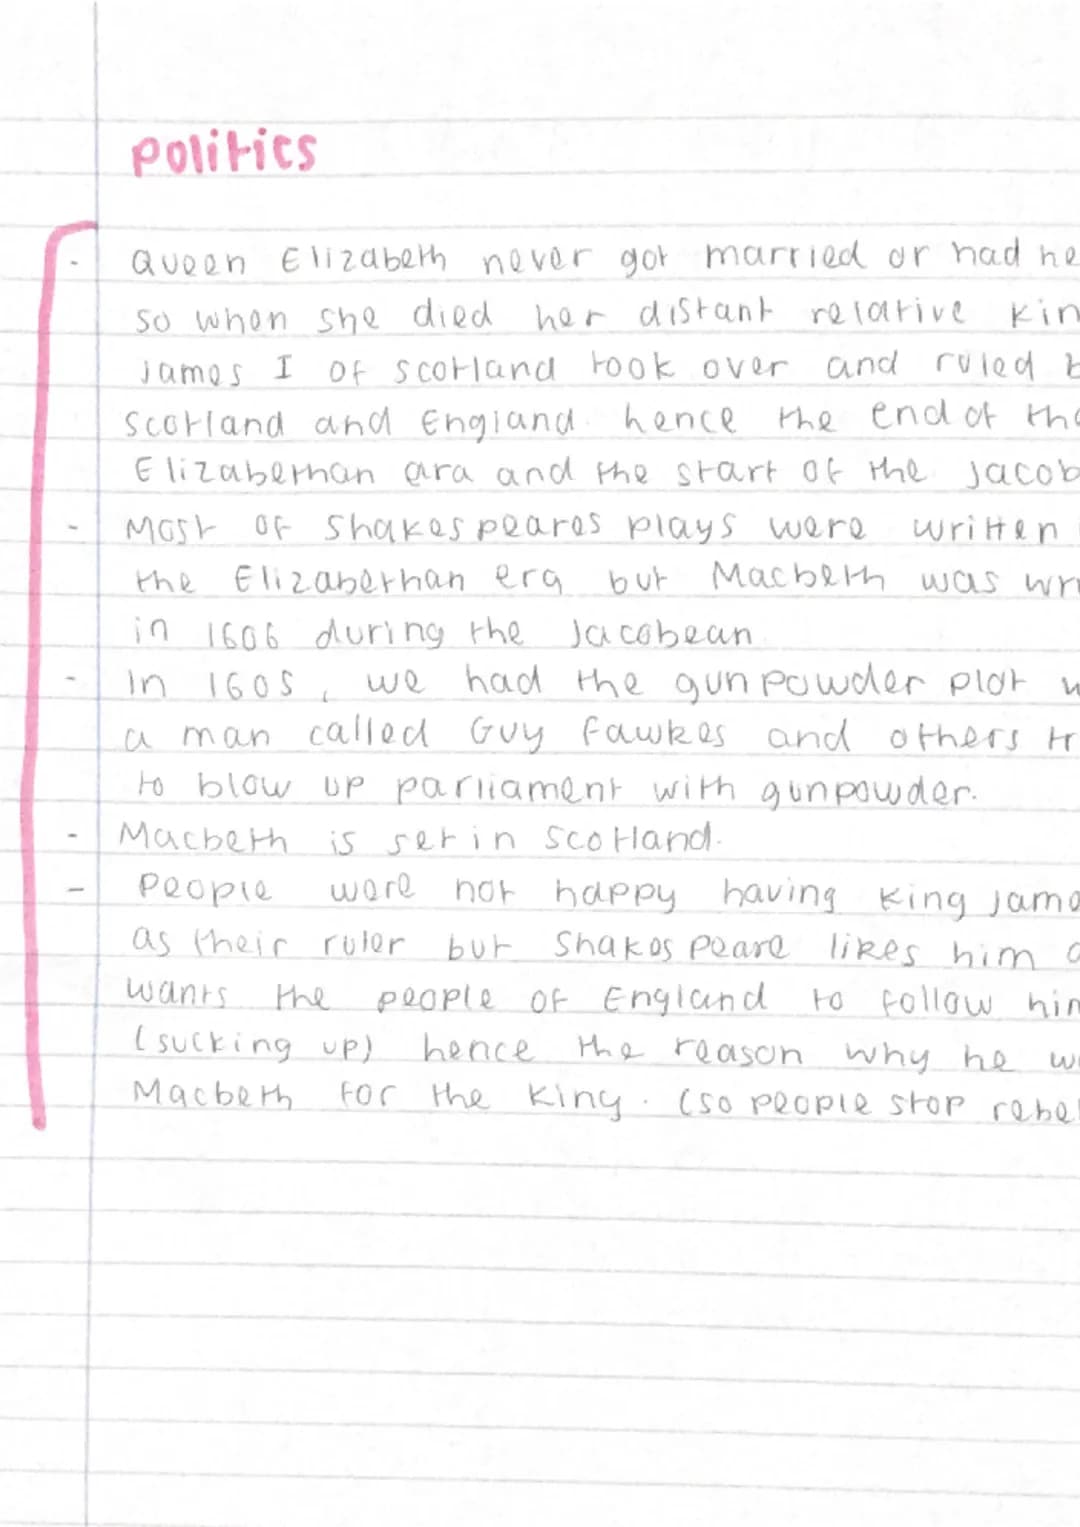 Politics
- Queen Elizabeth never got married or had he
so when she died her distant relative Kin
James I of scotland took over and ruled b
Scotland and England. hence the end of the
Elizabethan ara and the start of the Jacob
- Most of Shakespeares plays were written
the Elizabethan era but Macbeth was wri
in 1606 during the Jacobean
- In 1605, we had the gunpowder plot w
a man called Guy Fawkes and others tr
to blow up parliament with gunpowder.
- Macbeth is set in Scotland.
- People were not happy having King Jame
as their ruler but Shakespeare likes him a
wants the people of England to follow him
(sucking up) hence the reason why he w
Macbeth for the King. (so people stop rebel